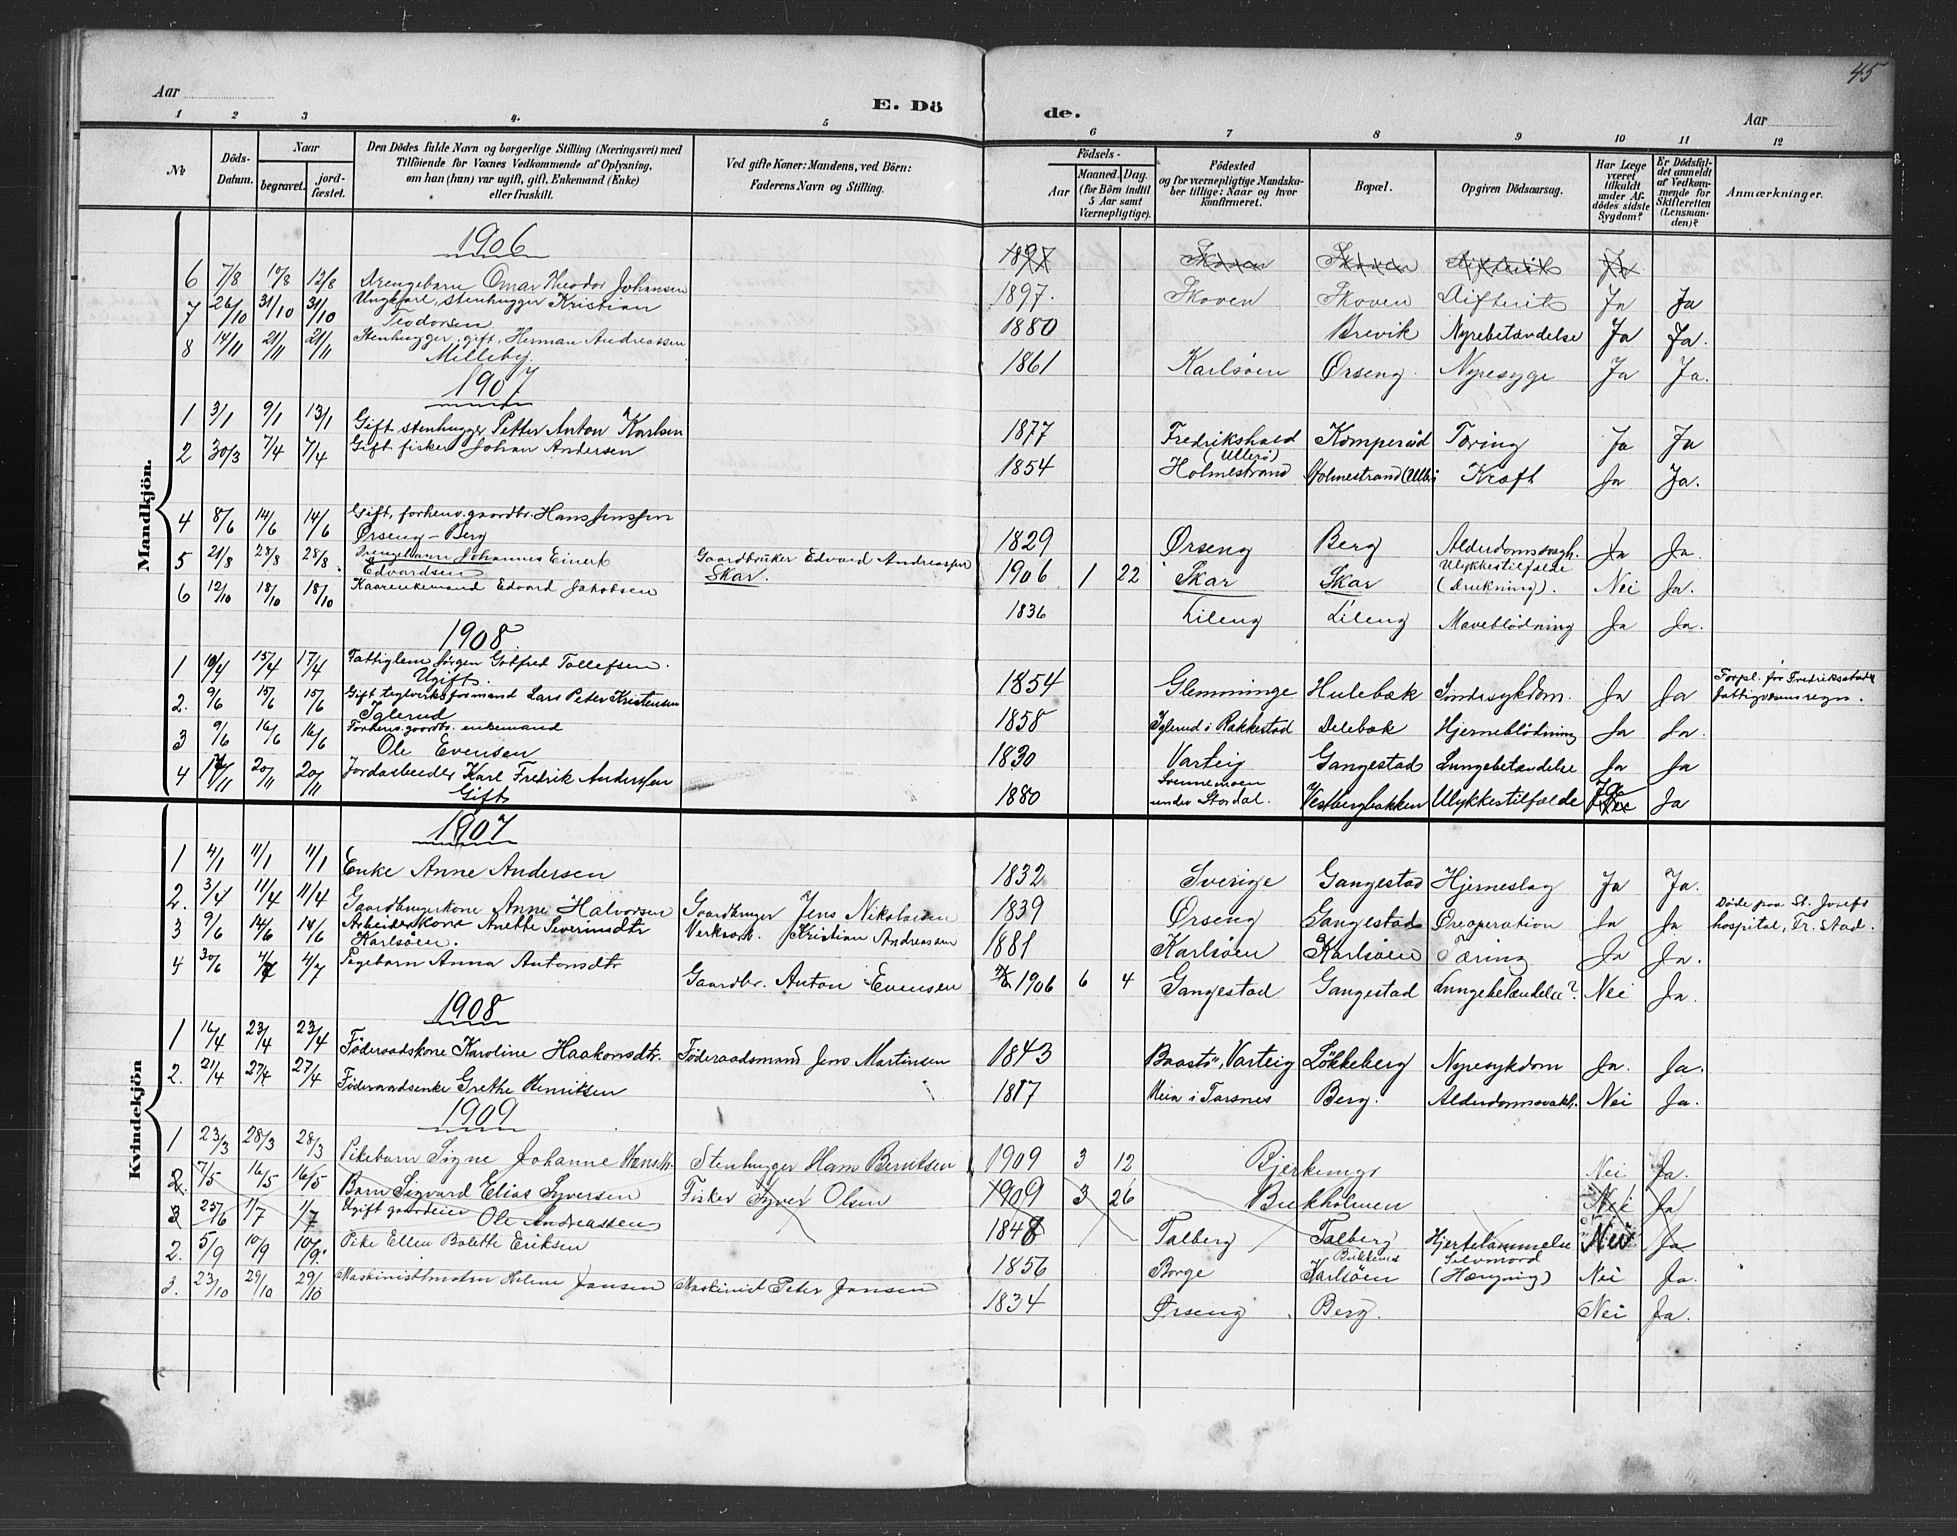 45
Aar
E. Dö
de.
Aar
1 2 3 4. 5 6 7 8 9 10 11 12
No
Döds-Datum.
Naar
begravet.
jord-fæstet.
Den Dödes fulde Navn og borgerlige Stilling (Næringsvei) med
Tilföiende for Voxnes Vedkommende af Oplysning,
om han (hun) var ugift, gift, Enkemand (Enke)
eller fraskilt.
Ved gifte Koner: Mandens, ved Börn:
Faderens Navn og Stilling.
Födsels-
Aar
Maaned. Dag.
(for Börn indtil
5 Aar samt
Værnepligtige).
Födested
og for værnepligtige Mandska-
ber tillige: Naar og hvor
konfirmeret.
Bopæl.
Opgiven Dödsaarsag.
Har Læge
været
tilkaldt
under Af-
dödes sidste
Sygdom?
Er Dödsfal-
det anmeldt
af Vedkom-
mende for
Skifteretten
(Lensman-
den)?
Anmærkninger.
Mandkjön.
1906
1897 Skoven Skoven Difterit Ja
6 7/8 10/8 12/8 Drengebarn Omar Theodor Johansen 1897. Skoven Skoven Difterit Ja Ja
7 26/10 31/10 31/10 Ungkarl, stenhugger Kristian
Teodorsen 1880 Brevik Nyrebetændelse Ja Ja.
8 14/11 21/11 21/11 Stenhugger, gift, Herman Andreassen
Milleby. 1861 Karlsöen Örseng. Nyresyge Ja Ja.
1907
1 3/1 9/1 13/1 Gift stenhugger Petter Anton Karlsen 1877 Fredrikshald Komperöd Tæring Ja Ja
(Ullerö)
2 30/3 7/4 7/4 Gift fisker Johan Andersen 1854 Holmestrand Holmestrand Kræft Ja Ja.
4 8/6 14/6 14/6 Gift, forhenv. gaardbr. Hans Jenssen
Örseng - Berg 1829 Örseng Berg Alderdomssvagh. Ja Ja.
5 21/8 28/8 28/8 Drengebarn Johannes Einert Gaardbruker Edvard Andreassen
Edvardsen Skar. 1906 1 22 Skar Skar Ulykkestilfælde
(Drukning). Nei Ja.
6 12/10 18/10 18/10 Kaarenkemand Edvard Jakobsen 1836 Lileng Lileng Maveblödning Ja Ja.
1908
1 10/4 15/4 17/4 Fattiglem Jörgen Gotfred Tollefsen.
Ugift. 1854 Glemminge Hulebæk Sindssykdom. Ja Ja Forpl. for Fredriksstads
fattigvæsens regn.
2. 9/6 15/6 15/6 Gift teglverksformand Lars Peter Kristensen
Iglerud 1858 Iglerud i Rakkestad Delebæk Hjerneblödning Ja Ja.
3 9/6 16/6 16/6 Forhenv. gaardbr. enkemand
Ole Evensen 1830 Varteig Gangestad Lungebetændelse Ja Ja
4 /11 20/11 20/11 Jordarbeider Karl Fredrik Anderssen
Gift 1880 Svennemoen
under Stordal. Vestbergbakken Ulykkestilfælde Ja Ja
Kvindekjön
1907
1 4/1 11/1 11/1 Enke Anne Andersen 1832 Sverige Gangestad Hjerneslag Ja Ja.
2. 3/4 11/4 11/4 Gaardbrugerkone Anne Halvorsen Gaardbruger Jens Nikolaisen 1839 Örseng Gangestad Öreoperation Ja Ja Döde paa St. Josefs
hospital, Fr. Stad.
3 9/6 14/6 14/6 Arbeiderkone Anette Severinsdtr
Karlsöen. Verksarb. Kristian Andreassen 1881 Karlsöen Karlsöen Tæring Ja Ja.
4 30/6 4/7 4/7 Pigebarn Anna Antonsdtr Gaardbr. Anton Evensen 1906 6 4 Gangestad Gangestad Lungebetændelse? Nei Ja.
1908
1 16/4 23/4 23/4 Föderaadskone Karoline Haakonsdtr. Föderaadsmand Jens Martinsen 1843 Baastö, Varteig Lökkeberg Nyresykdom Ja. Ja.
2. 21/4 27/4 27/4 Föderaadsenke Grethe Henriksen 1817 Meia i Torsnes Berg. Alderdomssvakh. Nei Ja.
1909
1 23/3 28/3 28/3 Pikebarn Signe Johanne Hansdtr. Stenhugger Hans Berntsen 1909 3 12 Bjerkeengs Nei Ja.
2. 7/5 16/5 16/5 Barn Sigvard Elias Syversen Fisker Syver Olsen 1909 3 26 Bukholmen Nei Ja
3 25/6 1/7 1/7 Ugift gaardeier Ole Andreassen 1848 Talberg Talberg Hjertelammelse Nei Ja
2. 5/9 10/9 10/9. Pike Ellen Bolette Eriksen 1856 Borge Karlsöen Selvmord
(Hængning) Nei Ja.
3. 23/10 29/10 29/10 Helene Jansen Maskinist Peter Jansen 1834 Örseng Berg. Nei Ja.